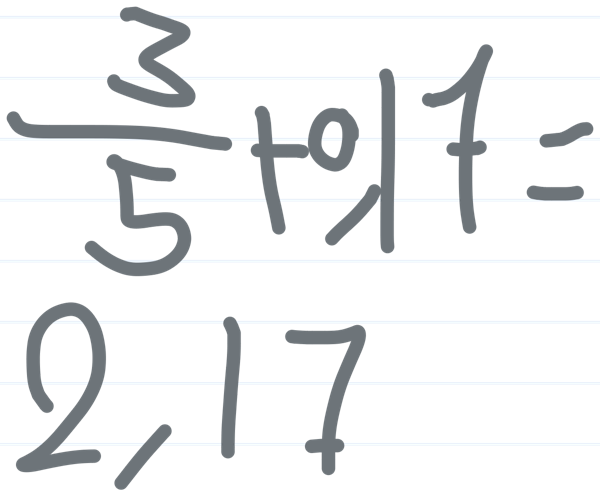 3/5 + 0,17 =
2,17